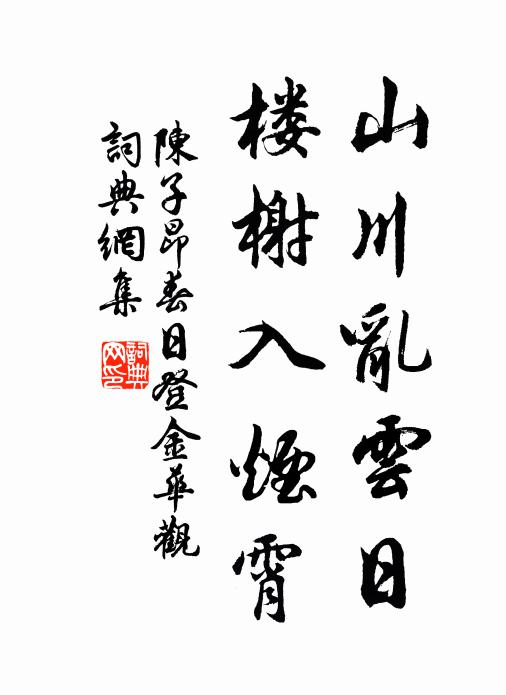 山川亂雲日
楼榭入煙霄
陳子昂春日登金華觀
詞典網集
詞典网印